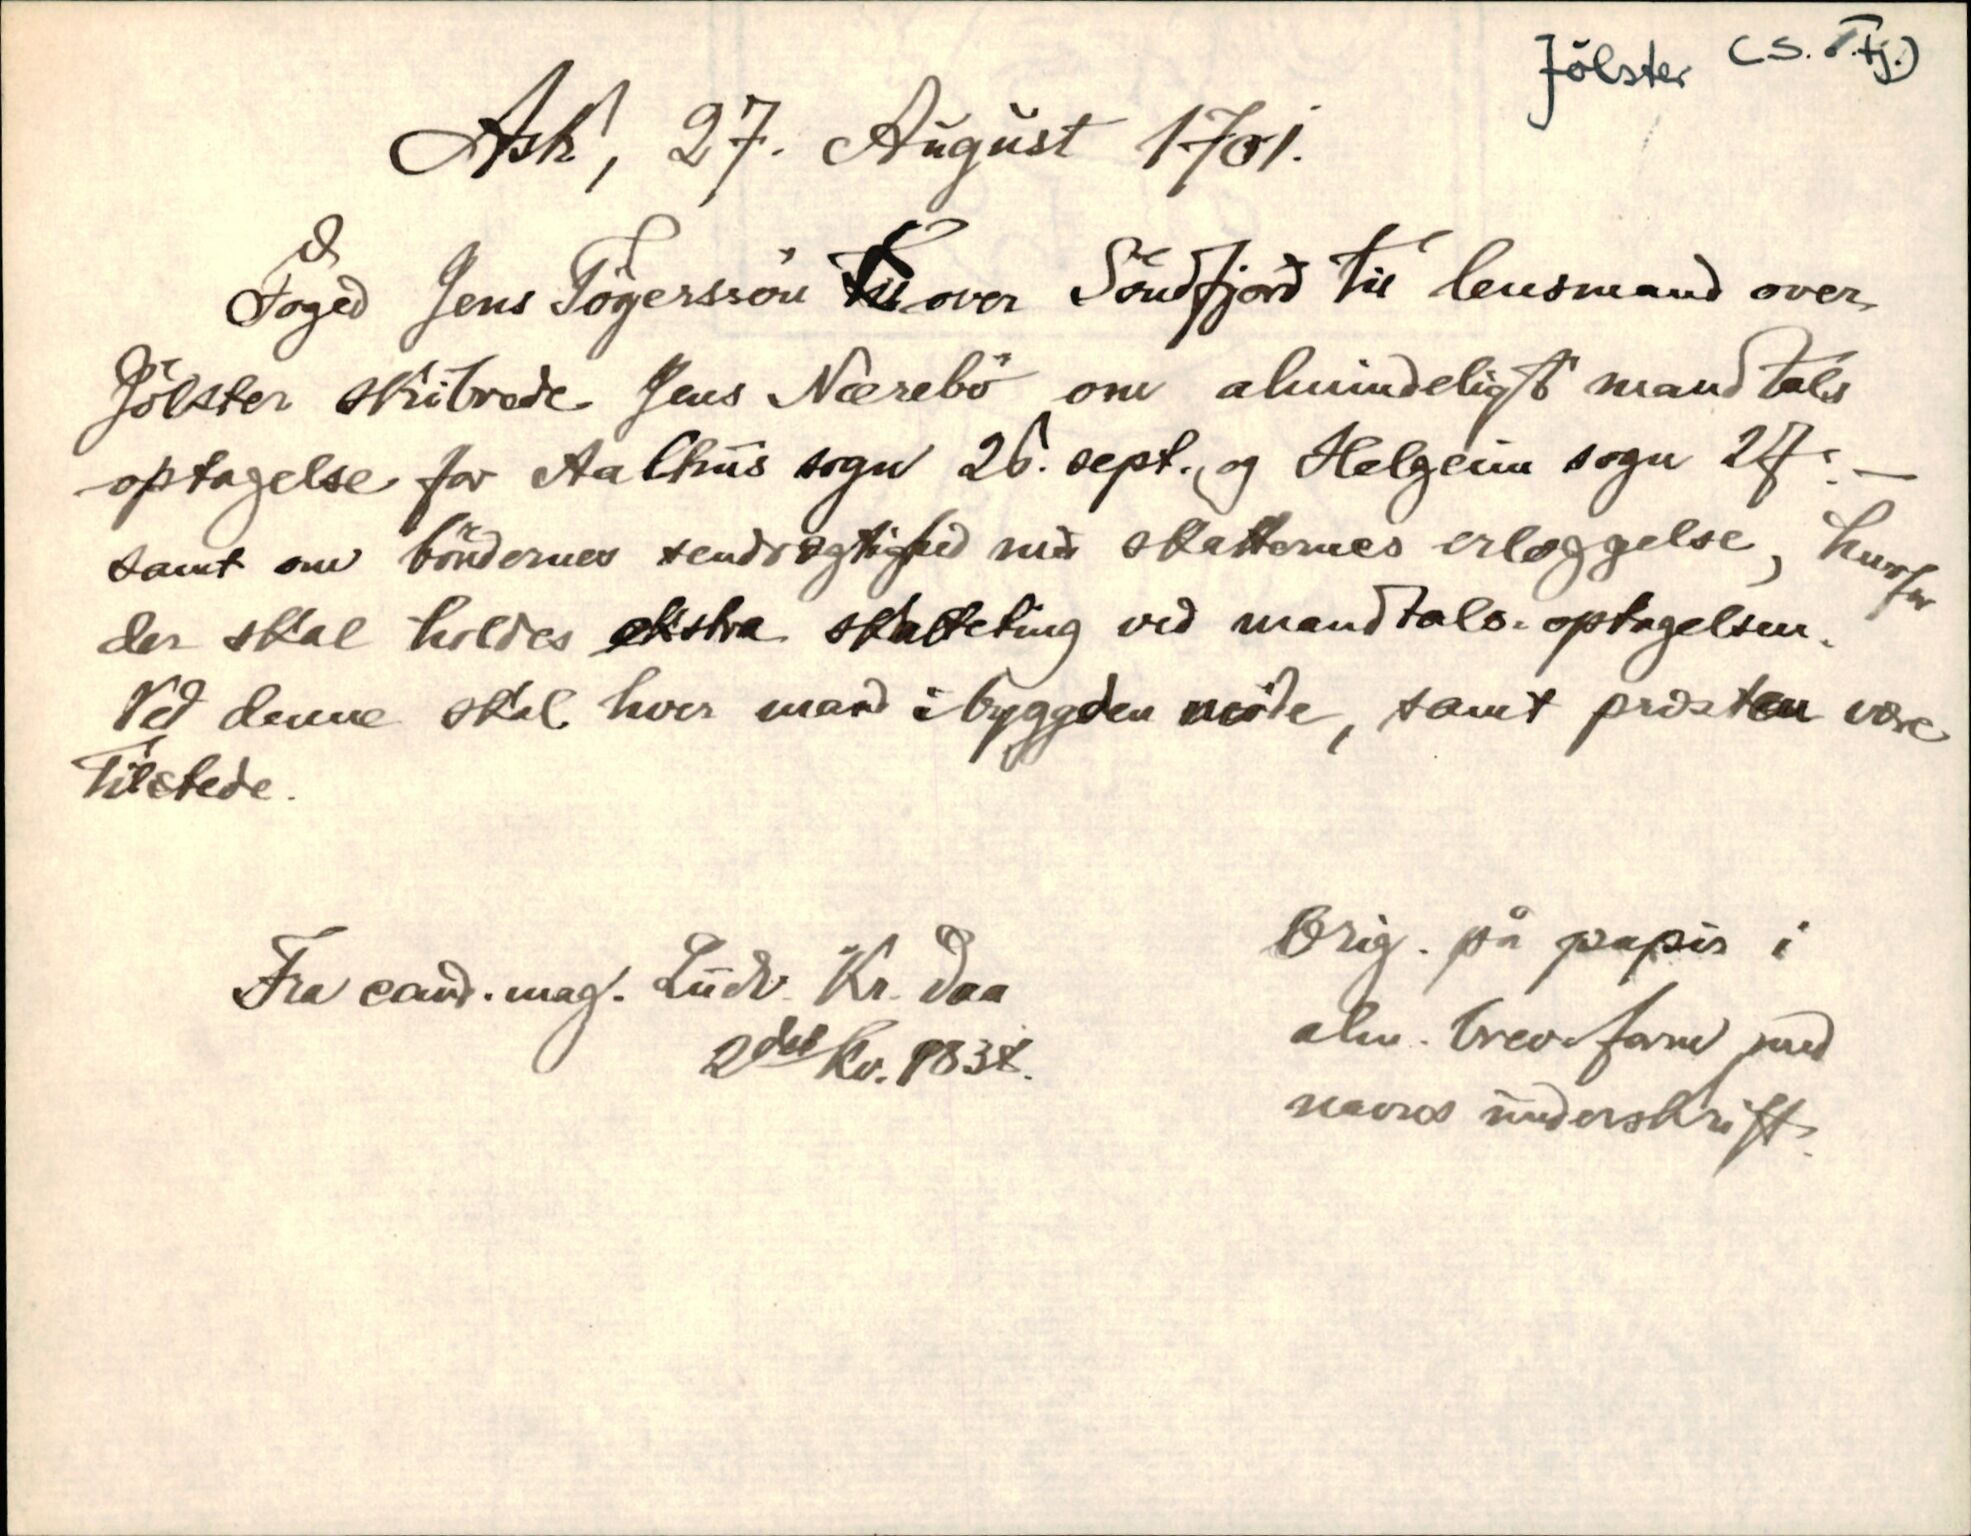 Jölster (S. o. Fj.)
Ask, 27. August 1701.
Foged Jens Tögerssön over Söndfjord til lensmand over
Jölster skibrede Jens Nærebö om almindeligt mandtals
optagelse for Aalhus sogn 26. sept., og Helgeim sogn 27. –
samt om böndernes sendrægtighed med skatternes erlæggelse, hvorfor
der skal holdes ekstra skatteting ved mandtals-optagelsen.
Ved denne skal hver mand i byggden möde, samt præsten være
tilstede.
Fra cand. mag. Ludv. Kr. Daa
2det Kv. 1838.
Orig. på papir i
alm. brev-form med
navns underskrift.